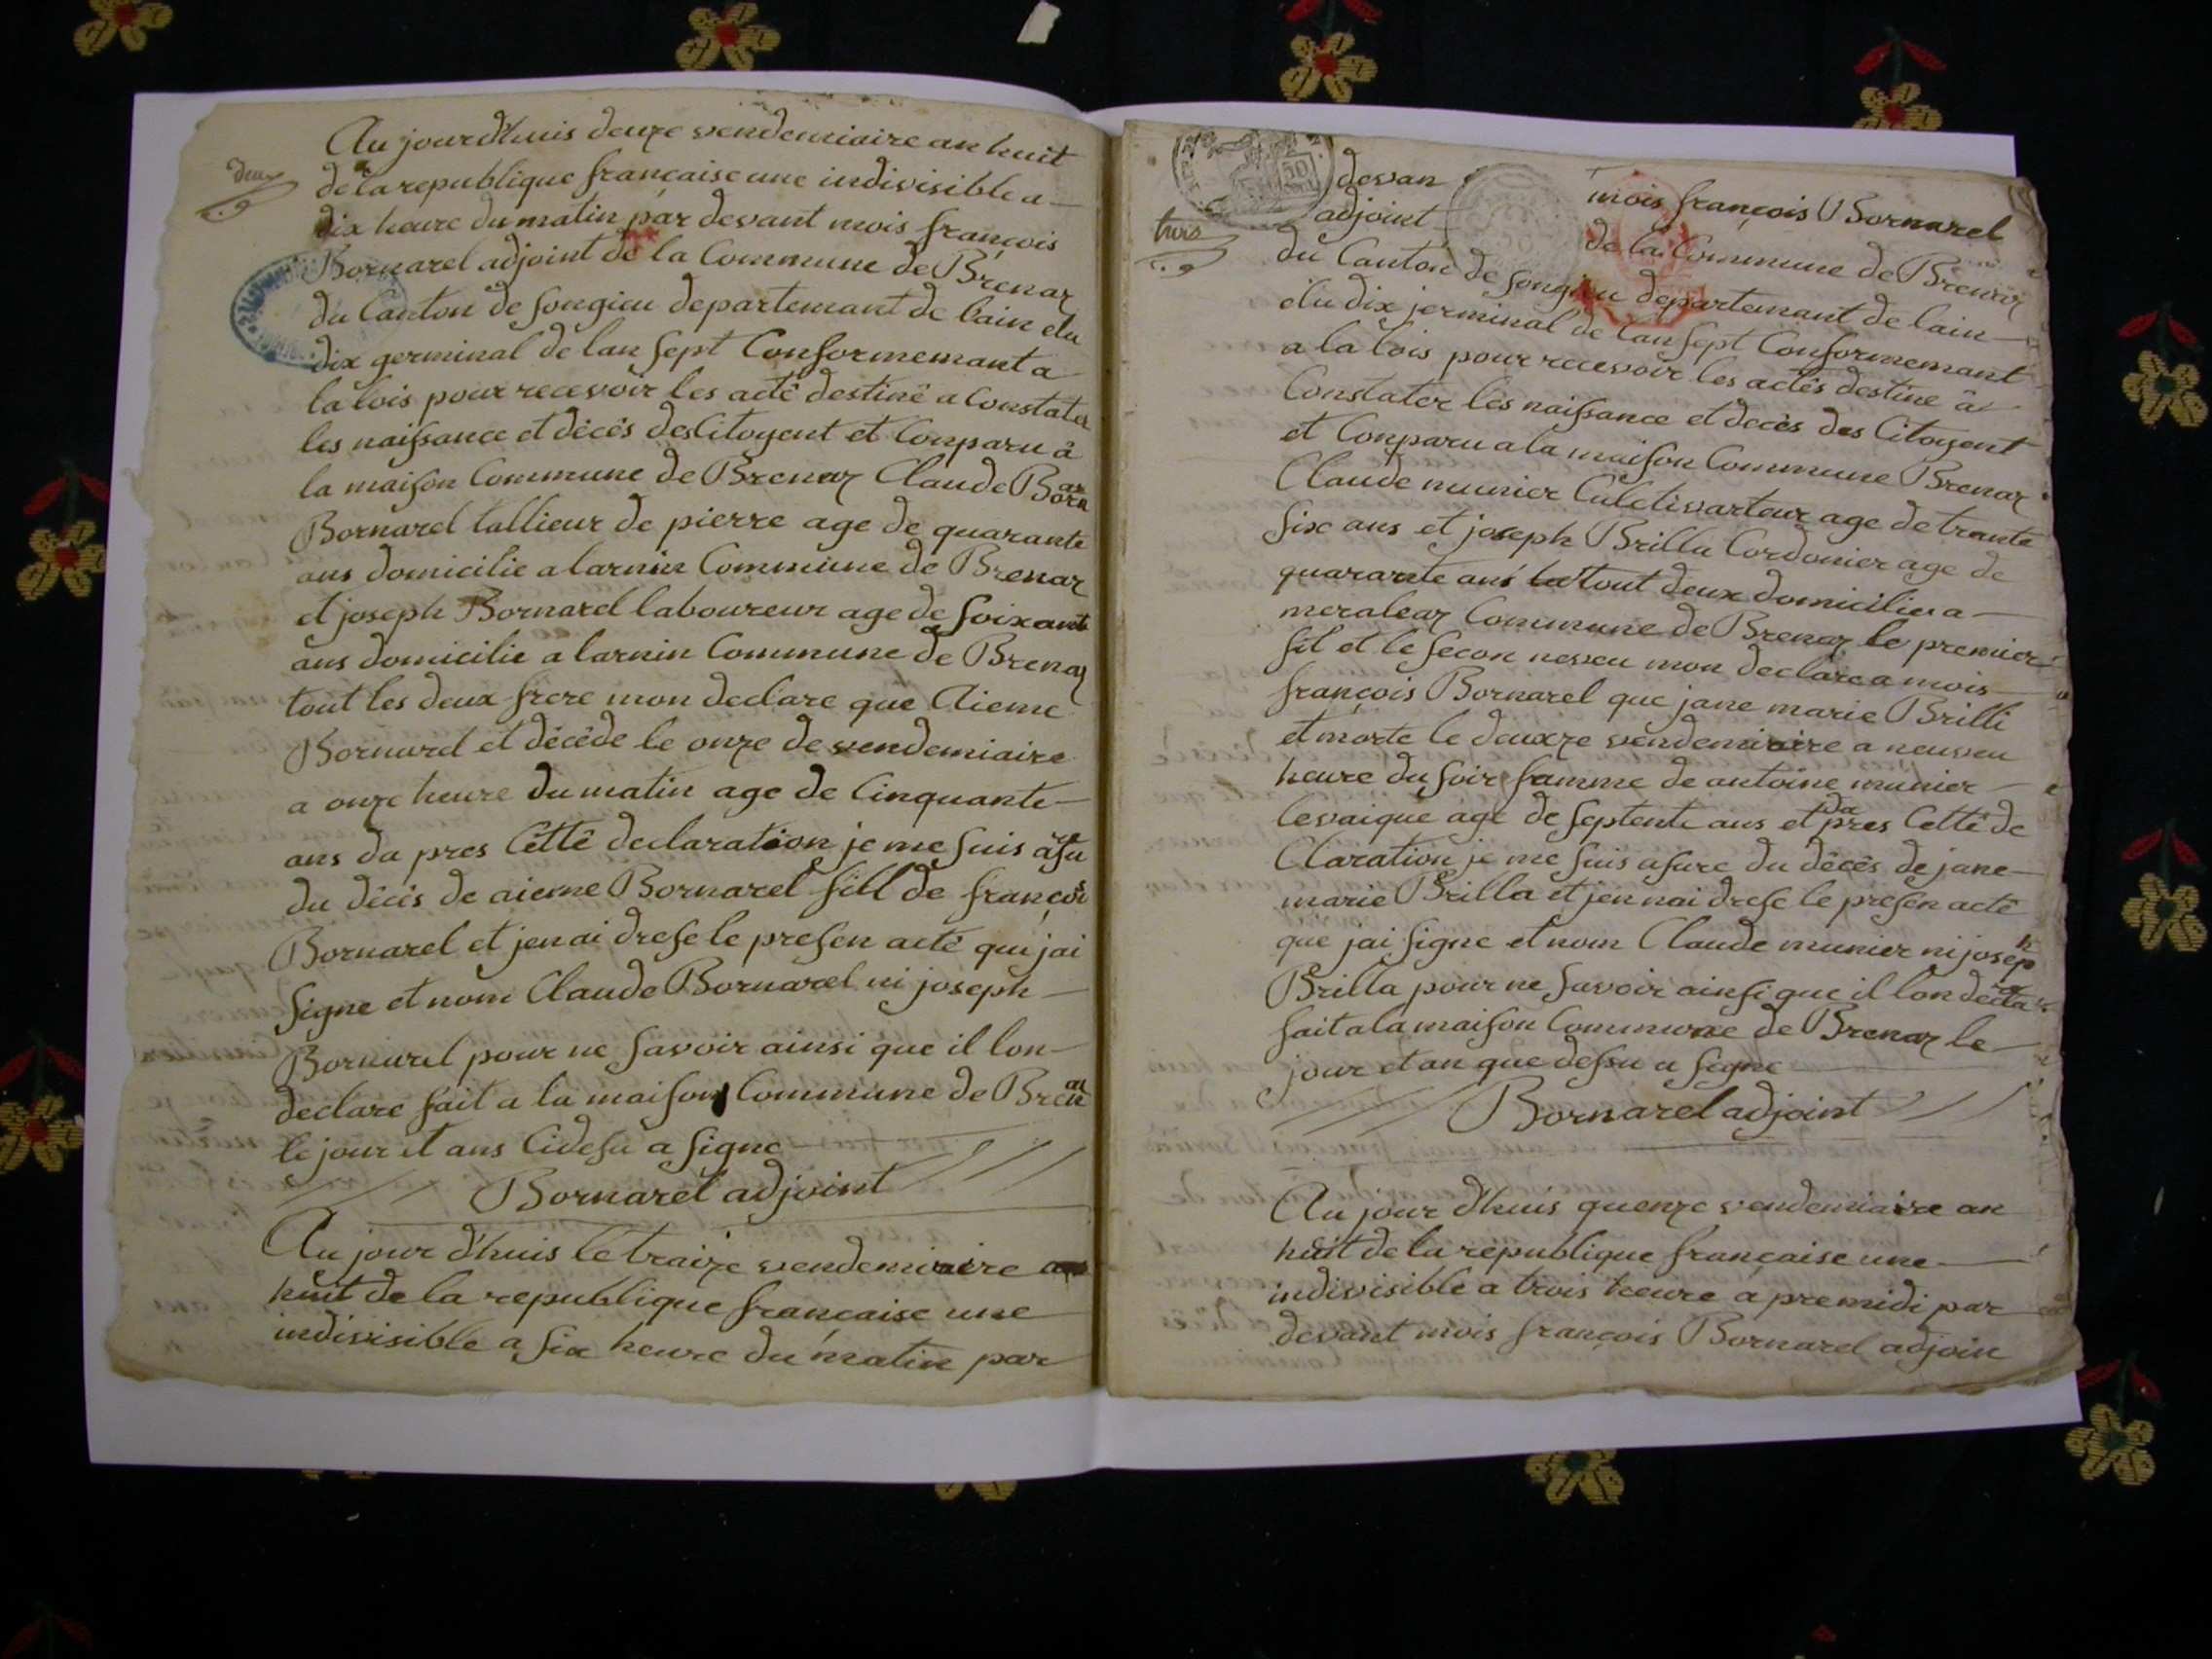 deux
Au jourdhuis deuze vendemiaire an huit
de la republique française une indivisible a
dix heure du matin par devant mois françois
Bornarel adjoint de la Commune de Brénaz
du Canton de songieu departemant de lain elu
dix germinal de lan sept Conformemant a
la lois pour recevoir les acté destiné a Constater
les naissance et décés des Citoyent et Conparu à
la maison Commune de Brenaz Claude Born
Bornarel tallieur de pierre age de quarante
ans domicilie a larnin Commune de Brenaz
et joseph Bornarel laboureur age de soixante
ans domicilie a larnin Commune de Brenaz
tout les deux frere mon declare que Aieme
Bornarel et décéde le onze de vendemiaire
a onze heure du matin age de Cinquante
ans da pres Cetté declaration je me suis asu
du décés de aieme Bornarel fill de françois
Bornarel et jen ai drese le presen acté qui jai
signe et nom Claude Bornarel ni joseph
Bornarel pour ne savoir ainsi que il lon
declare fait a la maison Commune de Bren
le jour et ans Cidesu a signe
Bornarel adjoint
Au jour d'huis le traize vendemiaire an
huit de la republique française une
indivisible a six heure du matin par
trois
devan mois françois Bornarel
adjoint de la Commune de Brenaz
du Canton de songieu departemant de lain
élu dix jerminal de lan sept Conformemant
a la lois pour recevoir les actés destine à
Constater lés naissance et decés des Citoyent
et Conparu a la maison Commune Brenaz
Claude munier Culetivarteur age de trante
six ans et joseph Brilla Cordonier age de
quarante ans tout deux domicilier a
meraleaz Commune de Brenaz le premier
fil et le secon neveu mon declare a mois
françois Bornarel que jane marie Brilli
et morte le deuxze vendemiaire a neuveu
heure du soir famme de antoine munier
levaique agé de septente ans et da pres Cetté de
Claration je me suis asure du décés de jane
marie Brilla et jen nai drese le presen acté
que jai signe et nom Claude munier ni joseph
Brilla pour ne savoir ainsi que il lon déclare
fait a la maison Commune de Brenaz le
jour et an que dessu a signe
Bornarel adjoint
Au jour d'huis quenze vendemiaire an
huit de la republique française une
indivisible a trois heure a premidi par
devant mois françois Bornarel adjoin